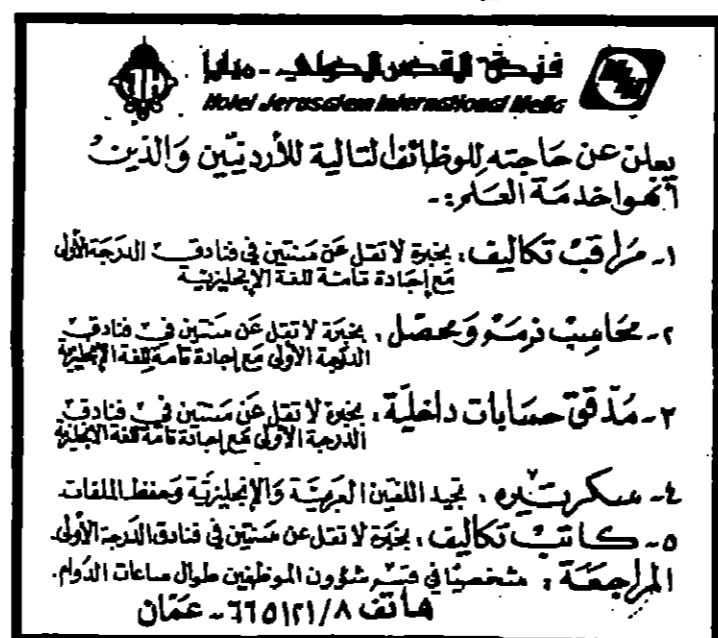 فندق القدس الدولي - ميليا
Hotel Jerusalem International Melia
يعلن عن حاجته للوظائف التالية للأردنيين والذين
أنهوا خدمة العلم:-
١- مراقب تكاليف، بخبرة لا تقل عن سنتين في فنادق الدرجة الأولى
مع إجادة تامة للغة الإنجليزية
٢- محاسب ذمم ومحصل، بخبرة لا تقل عن سنتين في فنادق
الدرجة الأولى مع إجادة تامة للغة الإنجليزية
٣- مدقق حسابات داخلية، بخبرة لا تقل عن سنتين في فنادق
الدرجة الأولى مع إجادة تامة للغة الإنجليزية
٤- سكرتيره، تجيد اللغتين العربية والإنجليزية وحفظ الملفات.
٥- كاتب تكاليف، بخبرة لا تقل عن سنتين في فنادق الدرجة الأولى.
المراجعة، شخصيًا في قسم شؤون الموظفين طوال ساعات الدوام.
هاتف ٦٦٥١٢١/٨ - عمّان